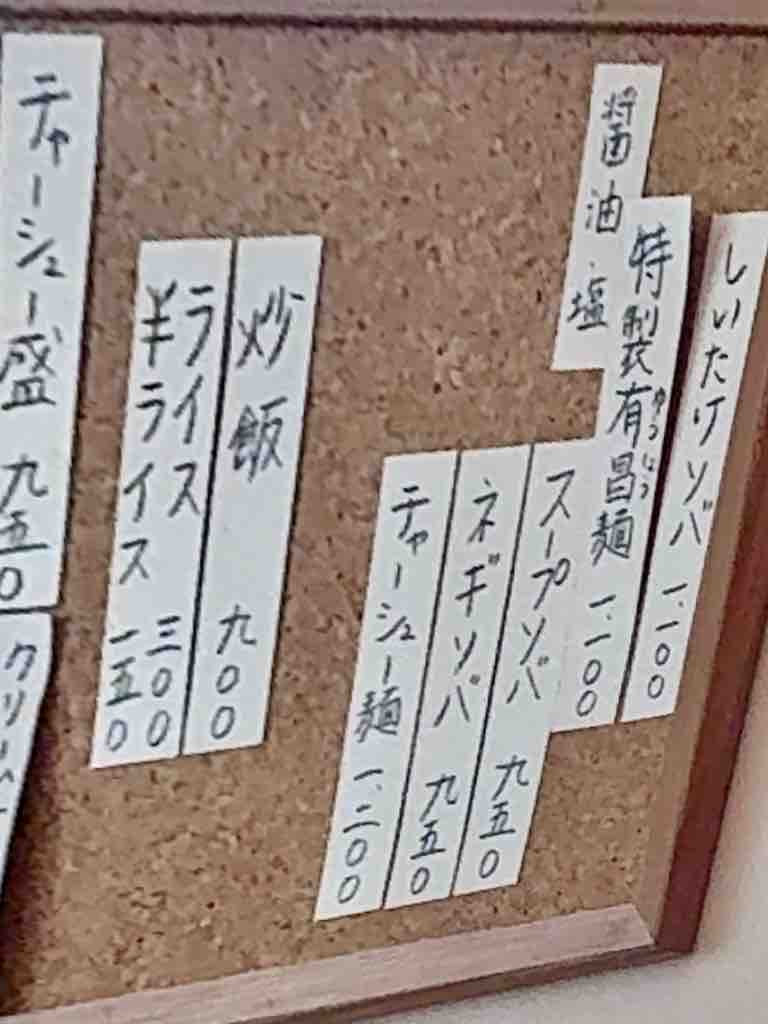 しいたけソバ 一、一〇〇
特製有昌麺 一、一〇〇
ゆうしょう
醤油・塩
スープソバ 九五〇
ネギソバ 九五〇
チャーシュー麺 一、二〇〇
炒飯 九〇〇
ライス 三〇〇
半ライス 一五〇
チャーシュー盛 九五〇